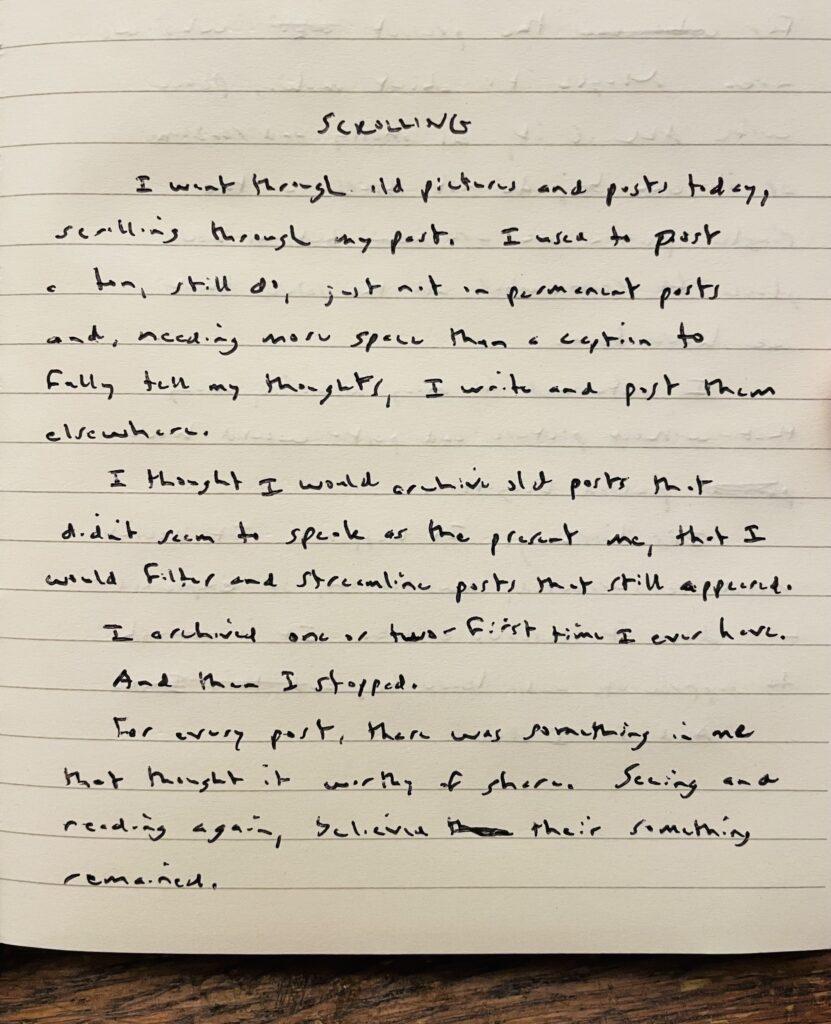 SCROLLING
I went through old pictures and posts today,
scrolling through my past. I used to post
a ton, still do, just not in permanent posts
and, needing more space than a caption to
fully tell my thoughts, I write and post them
elsewhere.
I thought I would archive old posts that
didn't seem to speak as the present me, that I
would filter and streamline posts that still appeared.
I archived one or two - first time I ever have.
And then I stopped.
For every post, there was something in me
that thought it worthy of share. Seeing and
reading again, believed their something
remained.